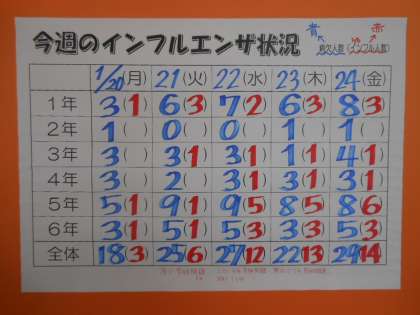 今週のインフルエンザ状況
青 赤
病欠人数 (インフル人数)
1/20(月) 21(火) 22(水) 23(木) 24(金)
1年 3(1) 6(3) 7(2) 6(3) 8(3)
2年 1( ) 0( ) 0( ) 1( ) 1( )
3年 3( ) 3(1) 3(1) 1(1) 4(1)
4年 3( ) 2( ) 3(1) 3(1) 3(1)
5年 5(1) 9(1) 9(5) 8(5) 8(6)
6年 3(1) 5(1) 5(3) 3(3) 5(3)
全体 18(3) 25(6) 27(12) 22(13) 29(14)